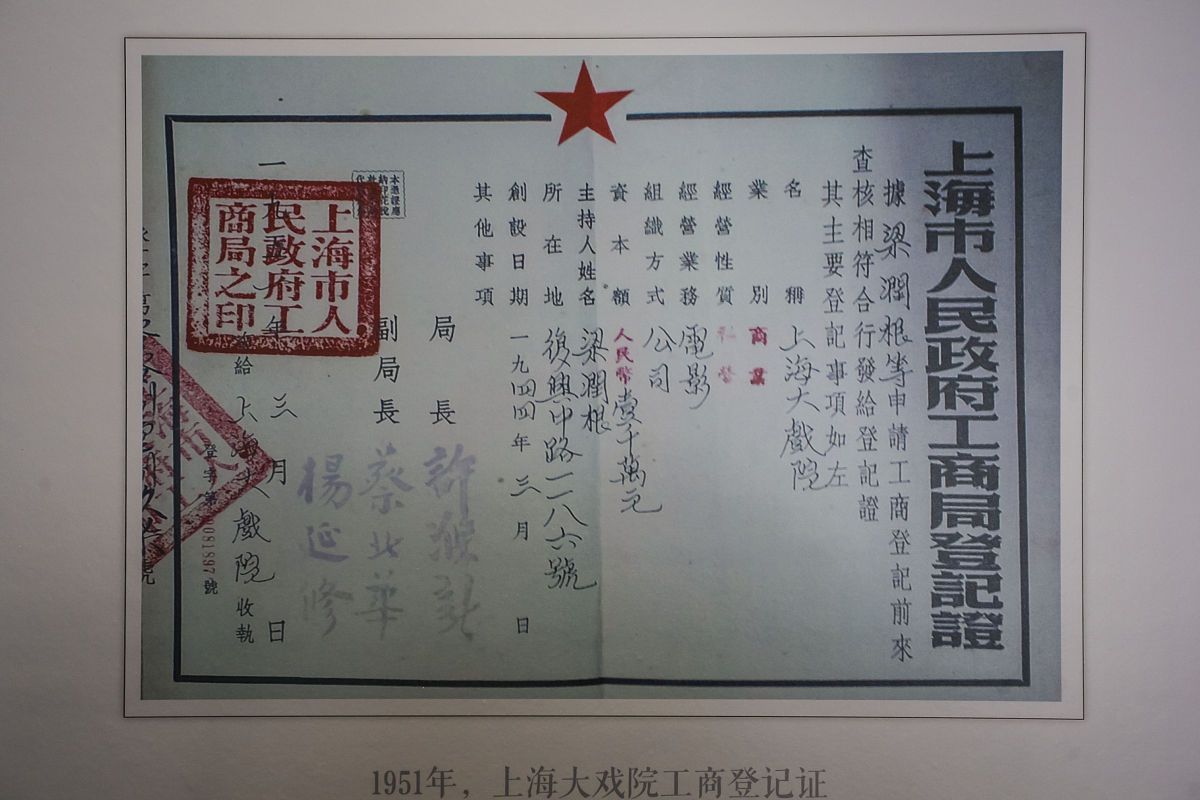 上海市人民政府工商局登記證
據梁潤根等申請工商登記前來
查核相符合行發給登記證
其主要登記事項如左
名稱 上海大戲院
業別 商業
經營性質 私營
經營業務 電影
組織方式 公司
資本額 人民幣壹千萬元
主持人姓名 梁潤根
所在地 復興中路一一八六號
創設日期 一九四四年三月 日
其他事項
局長 許
副局長 蔡北華
楊延修
本憑證應
上海市人
民政府工
商局之印
一九五一年三月 日
給 上海大戲院 收執
登字第 號
1951年，上海大戏院工商登记证